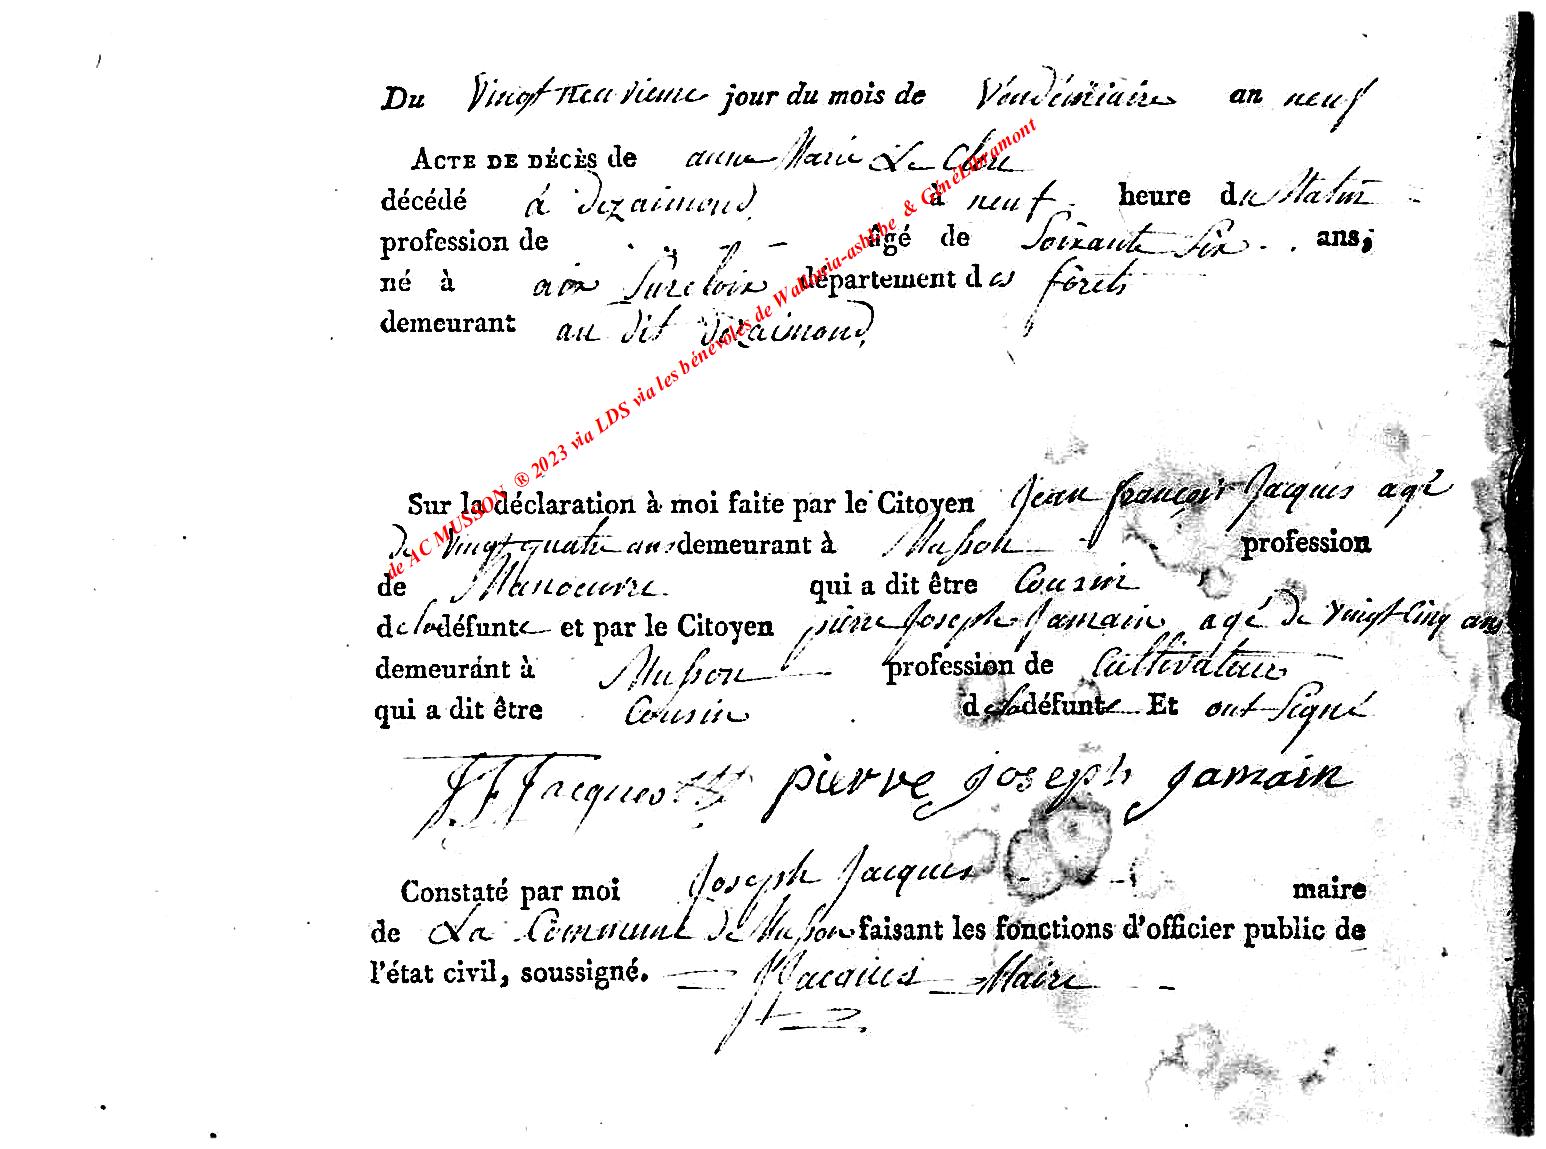 Du Vingt neuvieme jour du mois de Vendémiaire an neuf
ACTE DE DÉCÈS de anne Marie Le Clere
décédé à dezaimond à neuf heure du Matin
profession de âgé de Soixante Six ans,
né à aix Surcloix département des forêts
demeurant au dit dezaimond
Sur la déclaration à moi faite par le Citoyen Jean françois Jacques agé
de Vingt quatre ans demeurant à Musson profession
de Manoeuvre qui a dit être Cousin
de la défunte et par le Citoyen pierre Joseph Jamain agé de vingt Cinq ans
demeurant à Musson profession de Cultivateur
qui a dit être Cousin de la défunte Et ont Signé
JF Jacques pierre joseph jamain
Constaté par moi Joseph Jacques maire
de La Commune de Musson faisant les fonctions d'officier public de
l'état civil, soussigné. J Jacques Maire
de AC MUSSON ® 2023 via LDS via les bénévoles de Wallonia-asbl.be & GénéLibramont